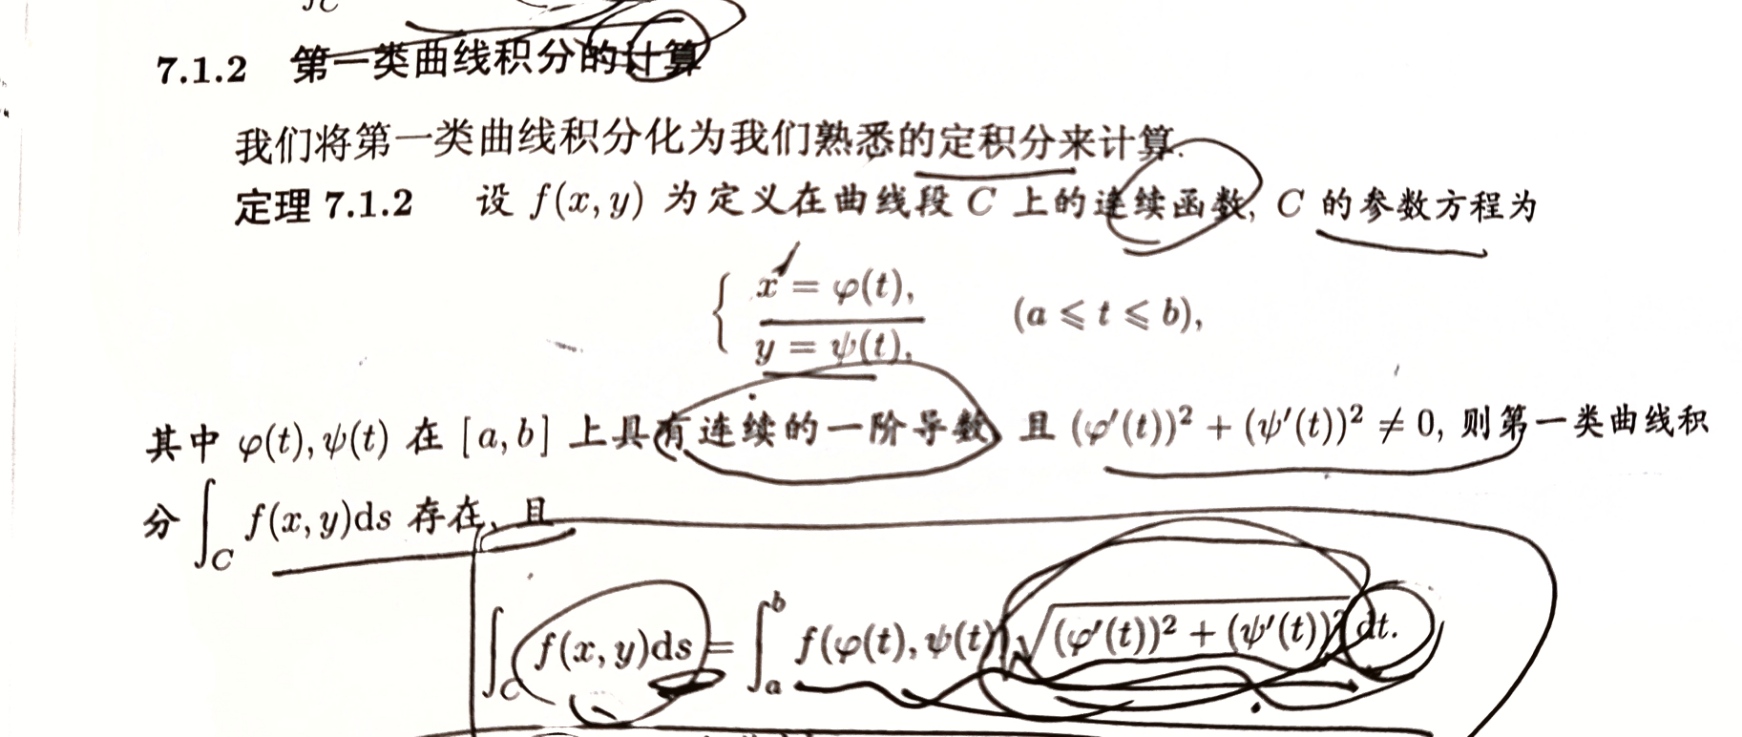 7.1.2 第一类曲线积分的计算
我们将第一类曲线积分化为我们熟悉的定积分来计算.
定理 7.1.2 设 f(x, y) 为定义在曲线段 C 上的连续函数, C 的参数方程为
{ x = φ(t),
y = ψ(t), (a ⩽ t ⩽ b),
其中 φ(t), ψ(t) 在 [a, b] 上具有连续的一阶导数, 且 (φ′(t))² + (ψ′(t))² ≠ 0, 则第一类曲线积
分 ∫_C f(x, y)ds 存在, 且
∫_C f(x, y)ds = ∫_a^b f(φ(t), ψ(t))√((φ′(t))² + (ψ′(t))²)dt.